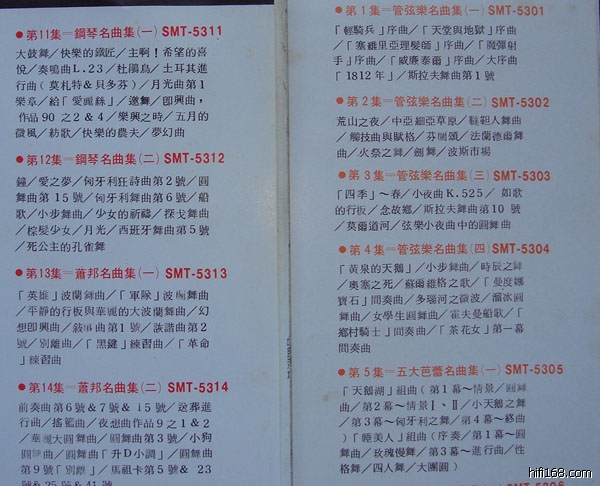 ●第11集=鋼琴名曲集(一) SMT-5311
大鼓舞╱快樂的鐵匠╱主啊!希望的喜
悅╱奏鳴曲L.23╱杜鵑鳥╱土耳其進
行曲(莫札特&貝多芬)╱月光曲第1
樂章╱給「愛麗絲」╱邀舞╱卽興曲,
作品90之2&4╱樂興之時╱五月的
微風╱紡歌╱快樂的農夫╱夢幻曲
●第12集=鋼琴名曲集(二) SMT-5312
鐘╱愛之夢╱匈牙利狂詩曲第2號╱圓
舞曲第15號╱匈牙利舞曲第6號╱船
歌╱小步舞曲╱少女的祈禱╱探戈舞曲
╱棕髮少女╱月光╱西班牙舞曲第5號
╱死公主的孔雀舞
●第13集=蕭邦名曲集(一) SMT-5313
「英雄」波蘭舞曲╱「軍隊」波蘭舞曲
╱平靜的行板與華麗的大波蘭舞曲╱幻
想卽興曲╱敍事曲第1號╱詼諧曲第2
號╱別離曲╱「黑鍵」練習曲╱「革命
」練習曲
●第14集=蕭邦名曲集(二) SMT-5314
前奏曲第6號&7號&15號╱送葬進
行曲╱搖籃曲╱夜想曲作品9之1&2
╱華麗大圓舞曲╱圓舞曲第3號╱小狗
圓舞曲╱圓舞曲「升D小調」╱圓舞曲
第9號「別離」╱馬祖卡第5號& 23
號&25號&41號
●第1集=管弦樂名曲集(一) SMT-5301
「輕騎兵」序曲╱「天堂與地獄」序曲
╱「塞維里亞理髮師」序曲╱「魔彈射
手」序曲╱「威廉泰爾」序曲╱大序曲
「1812年」╱斯拉夫舞曲第1號
●第2集=管弦樂名曲集(二) SMT-5302
荒山之夜╱中亞細亞草原╱韃靼人舞曲
╱觸技曲與賦格╱芬蘭頌╱法蘭德爾舞
曲╱火祭之舞╱劍舞╱波斯市場
●第3集=管弦樂名曲集(三) SMT-5303
「四季」~春╱小夜曲K.525╱如歌
的行板╱念故鄉╱斯拉夫舞曲第10號
╱莫爾道河╱弦樂小夜曲中的圓舞曲
●第4集=管弦樂名曲集(四) SMT-5304
「黃泉的天鵝」╱小步舞曲╱時辰之舞
╱奧塞之死╱蘇爾維格之歌╱「曼度娜
寶石」間奏曲╱多瑙河之微波╱溜冰圓
舞曲╱女學生圓舞曲╱霍夫曼船歌╱「
鄉村騎士」間奏曲╱「茶花女」第一幕
間奏曲
●第5集=五大芭蕾名曲集(一) SMT-5305
「天鵝湖」組曲(第1幕~情景╱圓舞
曲╱第2幕~情景Ⅰ、Ⅱ╱小天鵝之舞
╱第3幕~匈牙利之舞╱第4幕~終曲
)「睡美人」組曲(序奏╱第1幕~圓
舞曲╱玫瑰慢舞╱第3幕~進行曲╱性
格舞╱四人舞╱大團圓)
hifi168.com